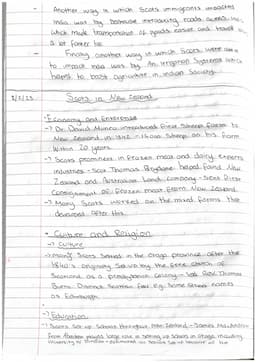 - Another way in which Scots immigrants impacted
India was by introducing roads
which made transportation of goods easier and travel
a lot faster too
- Finally another way in which Scots were able
to impact India was by An Irrigation Systems which
helped to boost agriculture in Indian Society.
Scots in New Zealand
Economy and Enterprise
→ Dr. David Munro introduced First Sheep farm to
New Zealand in 1842 - 14000 Sheep on his farm
within 20 years
→ Scots prominent in Frozen meat and dairy exports
industries - Scot Thomas Brydone helped found New
Zealand and Australian Land Company - Sent First
Consignment of frozen meat from New Zealand
→ Many Scots worked on the mixed farms that
developed after this.
• Culture and Religion
→ Culture
→ Many Scots settled in the Otago province after the
1840's originally set up by the Free Church of
Scotland as a presbyterian Colony - led by Rev. Thomas
Burns. Distinct Scottish feel e.g. Some street names
as Edinburgh
→ Education
→ Scots set up Schools throughout New Zealand - James
from Aberdeen played large role in setting up Schools in Otago, including
University of